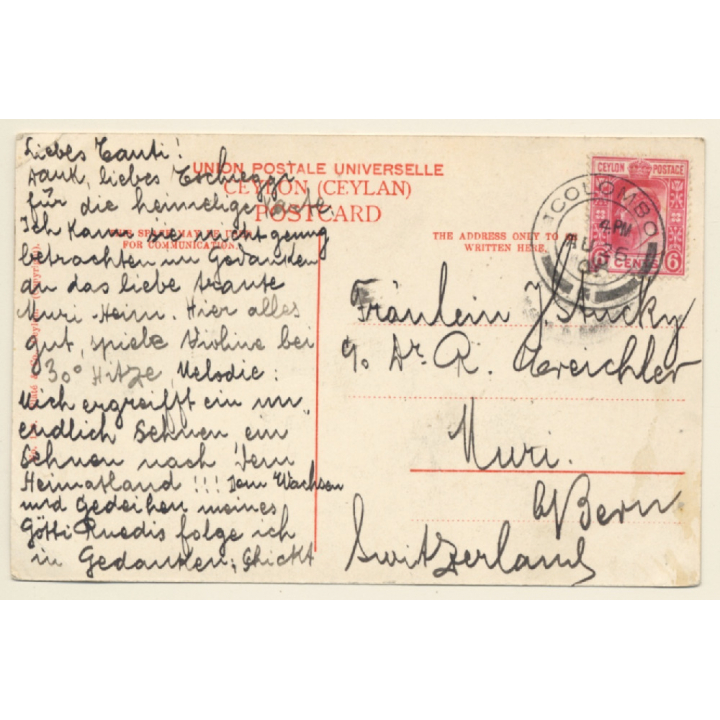 Liebes Tanti!
Dank, liebes
für die heimelige Karte
Ich kann sie nicht genug
betrachten um Gedanken
an das liebe traute
Muri-Heim. Hier alles
gut, spiele Violine bei
30° Hitze, Melodie:
Mich ergreifft ein un
endlich Sehnen ein
Sehnen nach dem
Heimatland!!! Dem Wachsen
und Gedeihen meines
Götti Ruedis folge ich
in Gedanken;
UNION POSTALE UNIVERSELLE
CEYLON (CEYLAN)
POSTCARD
FOR COMMUNICATION.
THE ADDRESS ONLY TO
WRITTEN HERE.
CEYLON POSTAGE
6 CENTS 6
COLOMBO
4 PM
AU 26
Fräulein J. Stucky
c/o Dr. R.
Muri.
b/Bern
Switzerland